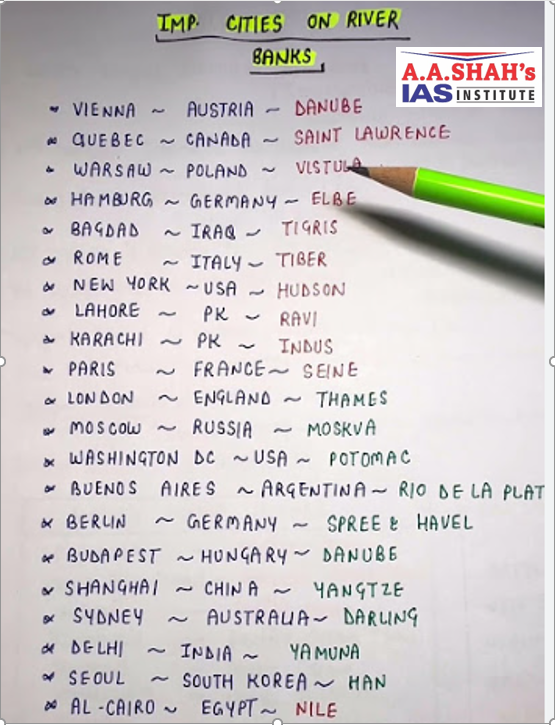 IMP. CITIES ON RIVER
BANKS
A.A.SHAH's
IAS INSTITUTE
VIENNA ~ AUSTRIA ~ DANUBE
QUEBEC ~ CANADA ~ SAINT LAWRENCE
WARSAW ~ POLAND ~ VISTULA
HAMBURG ~ GERMANY ~ ELBE
BAGDAD ~ IRAQ ~ TIGRIS
ROME ~ ITALY ~ TIBER
NEW YORK ~ USA ~ HUDSON
LAHORE ~ PK ~ RAVI
KARACHI ~ PK ~ INDUS
PARIS ~ FRANCE ~ SEINE
LONDON ~ ENGLAND ~ THAMES
MOSCOW ~ RUSSIA ~ MOSKVA
WASHINGTON DC ~ USA ~ POTOMAC
BUENOS AIRES ~ ARGENTINA ~ RIO DE LA PLAT
BERLIN ~ GERMANY ~ SPREE & HAVEL
BUDAPEST ~ HUNGARY ~ DANUBE
SHANGHAI ~ CHINA ~ YANGTZE
SYDNEY ~ AUSTRALIA ~ DARLING
DELHI ~ INDIA ~ YAMUNA
SEOUL ~ SOUTH KOREA ~ HAN
AL-CAIRO ~ EGYPT ~ NILE